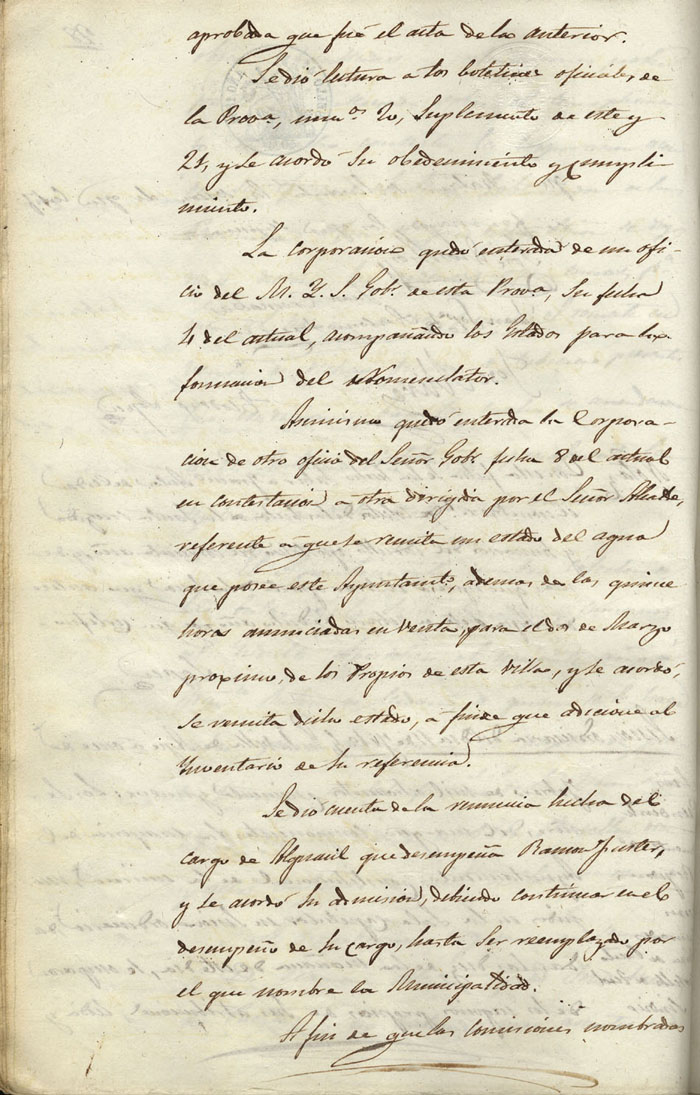 aprobada que fué el acta de la anterior.
Se dió lectura a los boletines oficiales, de
la Prov.ª, num.os 20, Suplemento de este y
21, y se acordó su obedecimiento y cumpli-
miento.
La corporacion quedó enterada de un ofi-
cio del M. Y. S. Gob.r de esta Prov.ª, su fecha
4 del actual, acompañando los Estados para la
formacion del Nomenclator.
Asimismo quedó enterada la Corpora-
cion de otro oficio del Señor Gob.r fecha 8 del actual
en contestacion a otra dirigida por el Señor Alcalde,
referente á que se remita un estado del agua
que posee este Ayuntam.to, ademas de las quince
horas anunciadas en venta, para el dos de Marzo
proximo, de los Propios de esta Villa, y se acordó,
se remita dicho estado, á fin de que adicione al
Ynventario de su referencia.
Se dió cuenta de la renuncia hecha del
cargo de Alguacil que desempeña Ramon Juster,
y se acordó su admision, debiendo continuar en el
desempeño de su cargo, hasta ser reemplazado por
el que nombre la Municipalidad.
A fin de que las comisiones nombradas